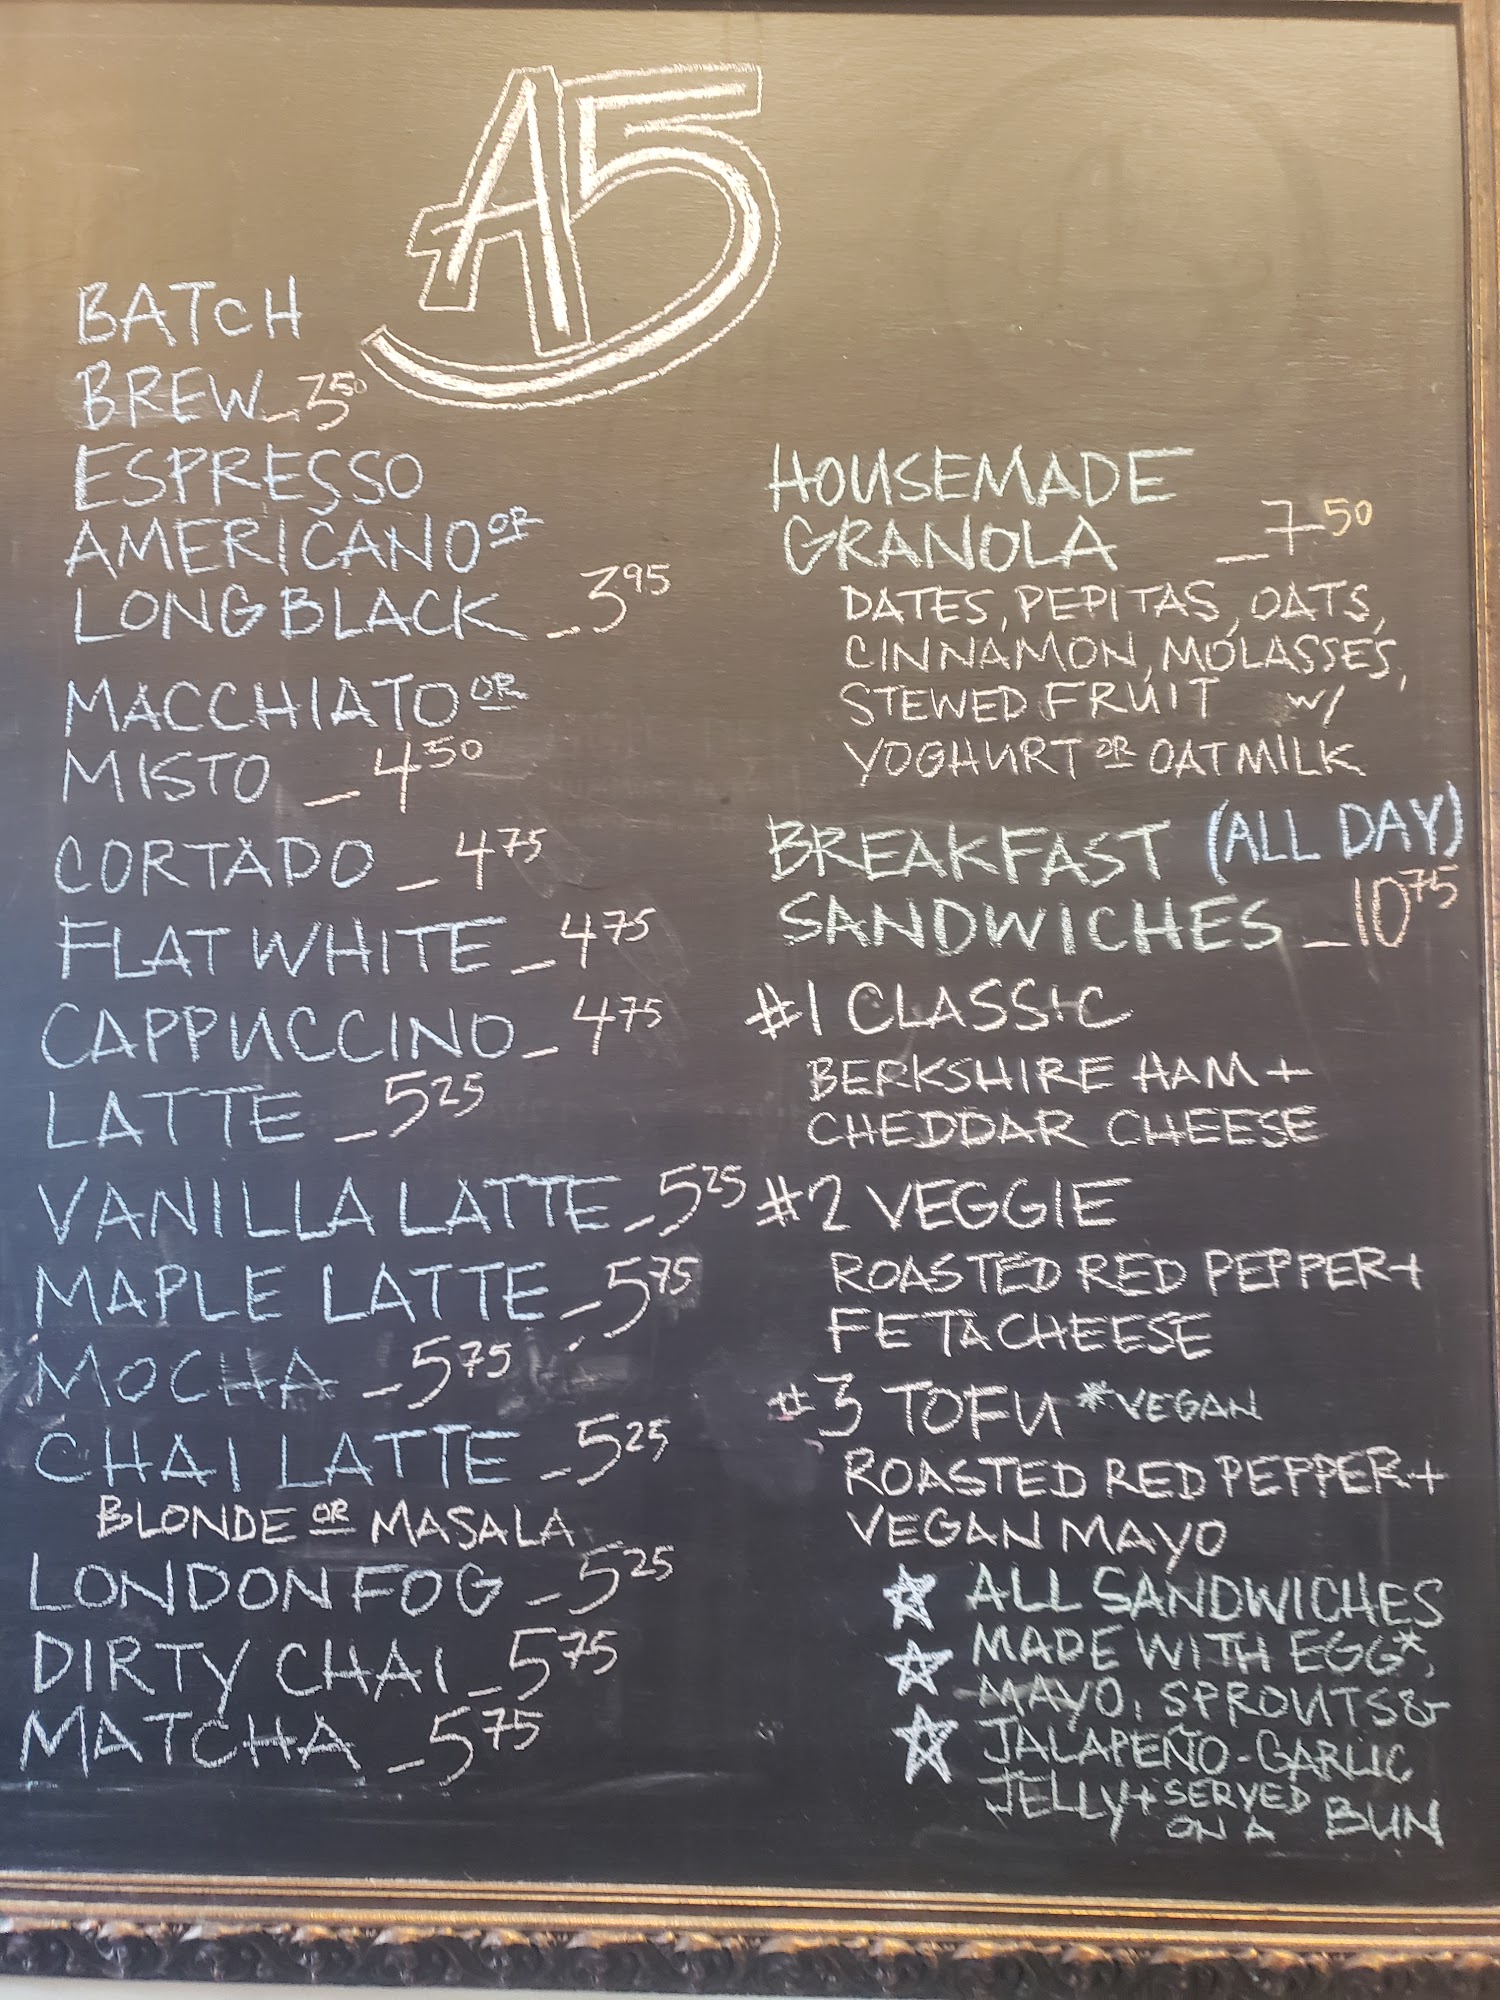 A5
BATCH
BREW _ 3 50
ESPRESSO
AMERICANO OR
LONG BLACK _ 3 95
MACCHIATO OR
MISTO _ 4 50
CORTADO _ 4 75
FLAT WHITE _ 4 75
CAPPUCCINO _ 4 75
LATTE _ 5 25
VANILLA LATTE _ 5 25
MAPLE LATTE _ 5 75
MOCHA _ 5 75
CHAI LATTE _ 5 25
BLONDE OR MASALA
LONDON FOG _ 5 25
DIRTY CHAI _ 5 75
MATCHA _ 5 75
HOUSEMADE
GRANOLA _ 7 50
DATES, PEPITAS, OATS,
CINNAMON, MOLASSES,
STEWED FRUIT W/
YOGHURT OR OATMILK
BREAKFAST (ALL DAY)
SANDWICHES _ 10 75
#1 CLASSIC
BERKSHIRE HAM +
CHEDDAR CHEESE
#2 VEGGIE
ROASTED RED PEPPER +
FETA CHEESE
#3 TOFU *VEGAN
ROASTED RED PEPPER +
VEGAN MAYO
ALL SANDWICHES
MADE WITH EGG*,
MAYO, SPROUTS &
JALAPEÑO-GARLIC
JELLY + SERVED
ON A BUN